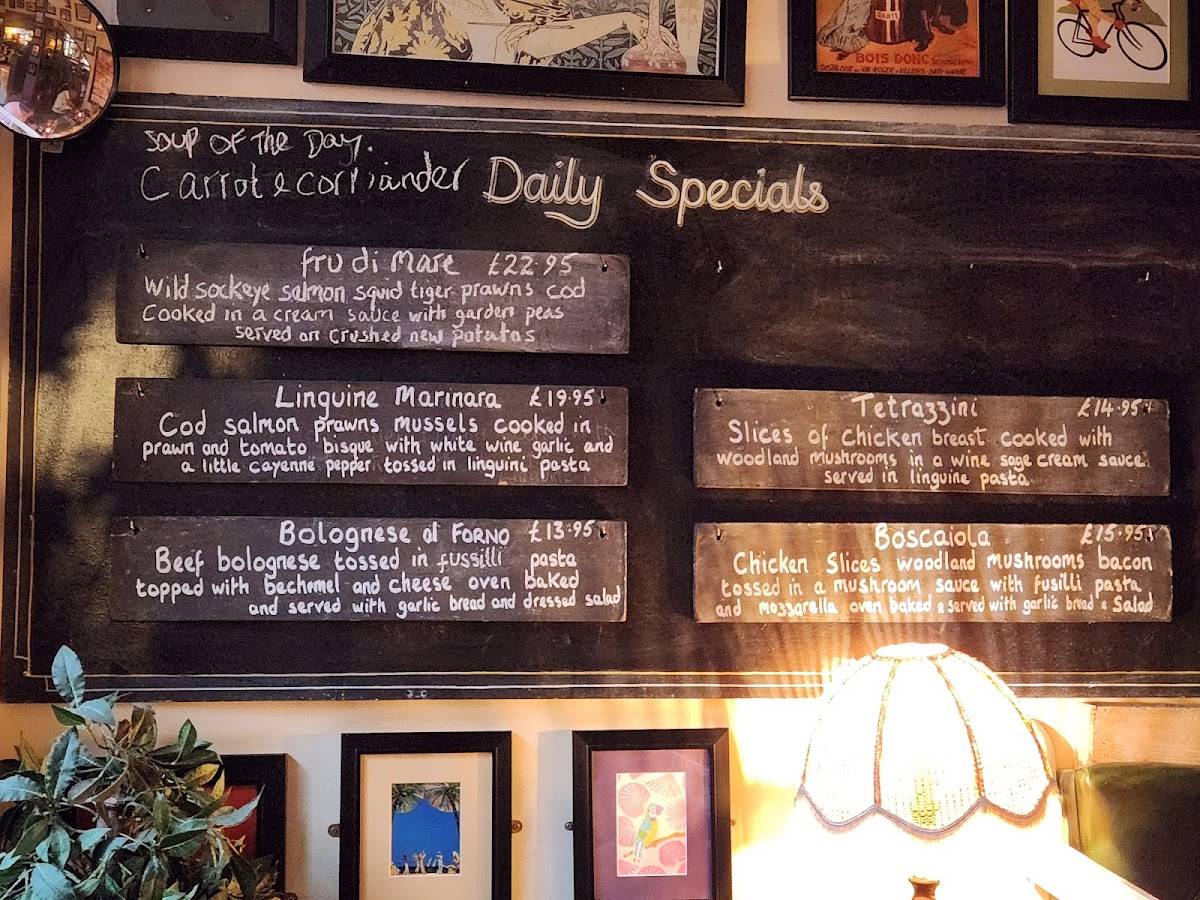 BOIS DONC
Soup of the Day.
Carrot & corriander
Daily Specials
fru di Mare £22.95
Wild sockeye salmon squid tiger prawns cod
Cooked in a cream sauce with garden peas
served on crushed new potatos
Linguine Marinara £19.95
Cod salmon prawns mussels cooked in
prawn and tomato bisque with white wine garlic and
a little cayenne pepper tossed in linguini pasta
Bolognese al FORNO £13.95
Beef bolognese tossed in fussilli pasta
topped with bechemel and cheese oven baked
and served with garlic bread and dressed salad
Tetrazzini £14.95
Slices of chicken breast cooked with
woodland mushrooms in a wine sage cream sauce
served in linguine pasta
Boscaiola £15.95
Chicken Slices woodland mushrooms bacon
tossed in a mushroom sauce with fusilli pasta
and mozzarella oven baked & served with garlic bread & Salad